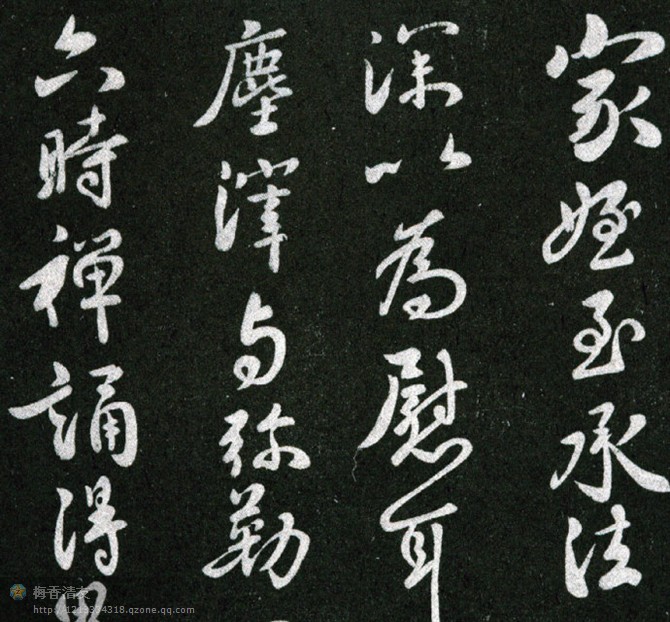 家姪至承法
深以為慰耳
塵澤与弥勒
六時禅誦得
梅香清友
http://1213354318.qzone.qq.com